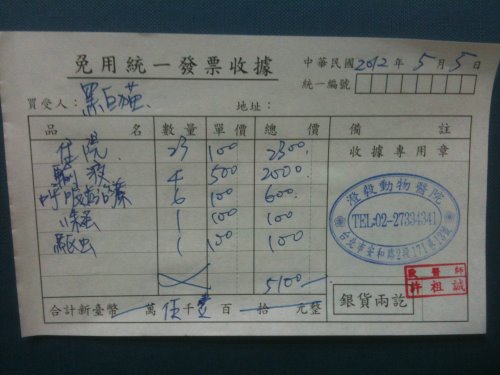 免用統一發票收據
中華民國2012年5月5日
統一編號
買受人：黑白猫
地址：
品名 數量 單價 總價 備註
住院 23 100 2300 收據專用章
輸液 4 500 2000
呼吸治療 6 100 600
1 100 100
驅虫 1 100 100
5100
合計新臺幣 萬伍千壹百拾元整
銀貨兩訖
澄毅動物醫院
TEL:02-27334341
台北市安和路2段171巷13號
獸醫師
許祖誠